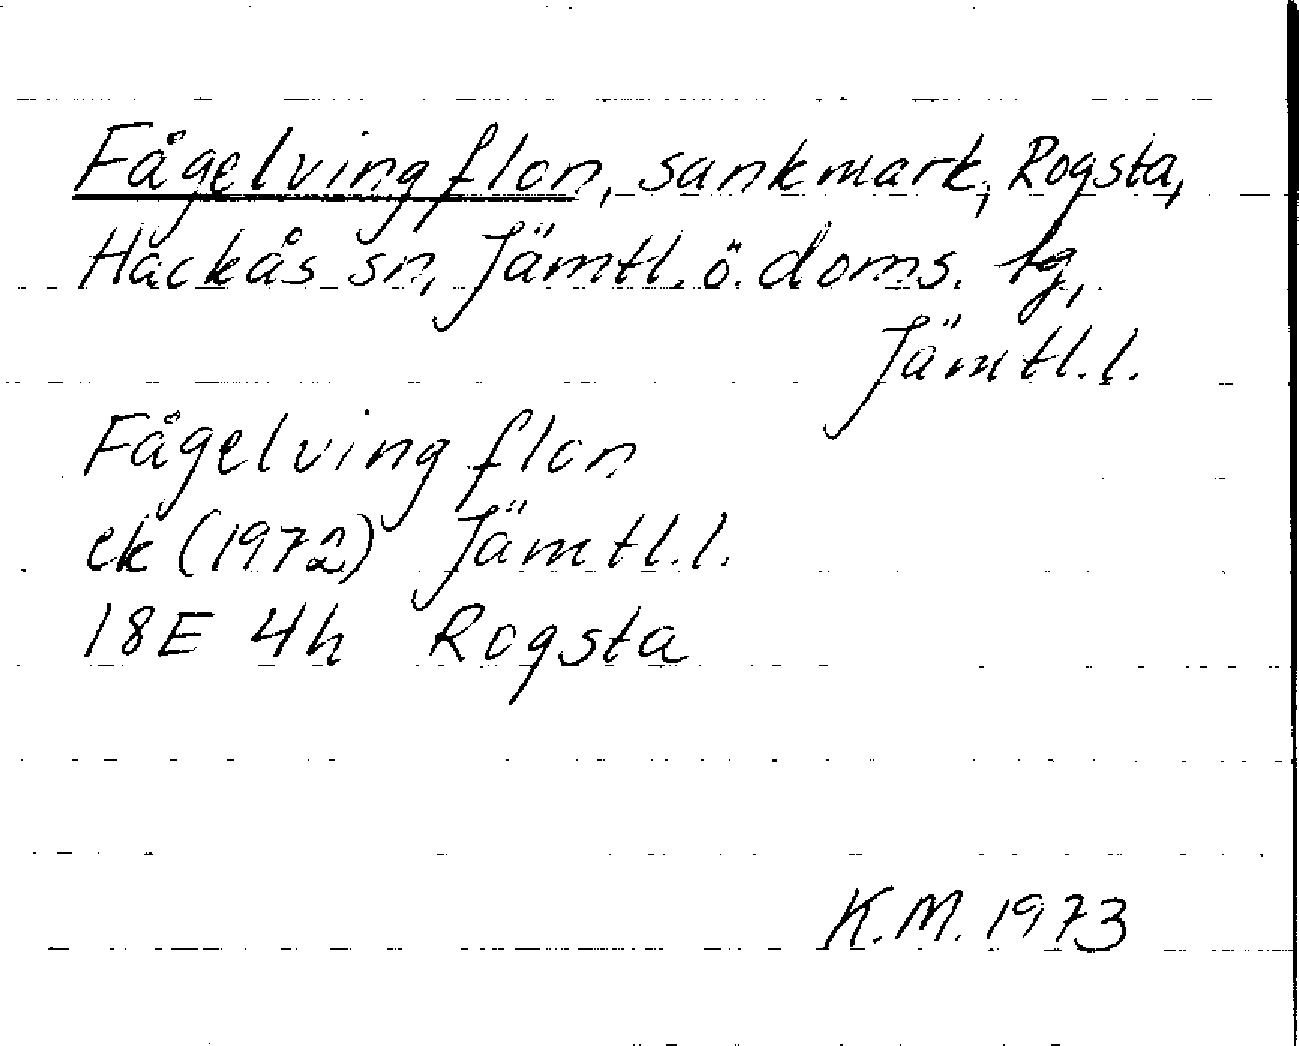 Fågelvingflon, sankmark, Rogsta,
Hackås sn, Jämtl. ö. doms. tg,
Jämtl. l.
Fågelvingflon
ek (1972) Jämtl. l.
18E 4h Rogsta
K.M. 1973